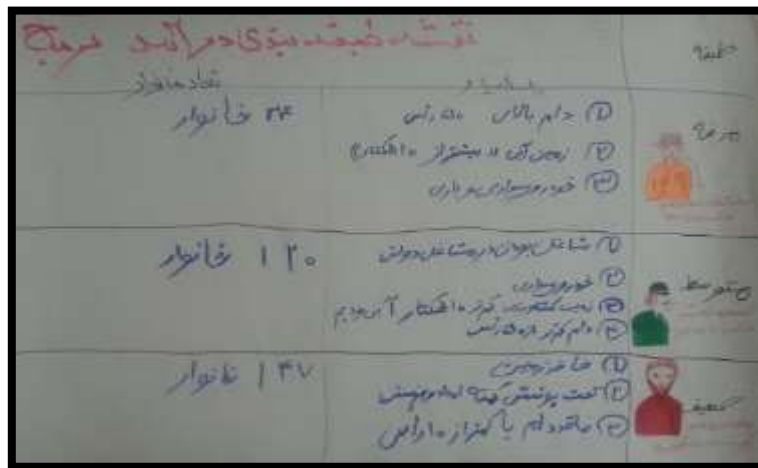 نقشه طبقه بندی درآمد
طبقه
تعداد خانوار
مرفه
① دام بالای ۵۰ راس
② زمین آبی بیشتر از ۱۰ هکتار
③ خودرو سواری و باری
۲۴ خانوار
متوسط
① شاغل بودن در مشاغل دولتی
② خودرو سواری
③ زمین کشاورزی کمتر ۱۰ هکتار آبی و دیم
دام کمتر از ۵۰ راس
۱۲۰ خانوار
ضعیف
① فاقد زمین
② تحت پوشش کمیته امداد و بهزیستی
③ فاقد دام یا کمتر از ۱۰ راس
۱۴۷ خانوار